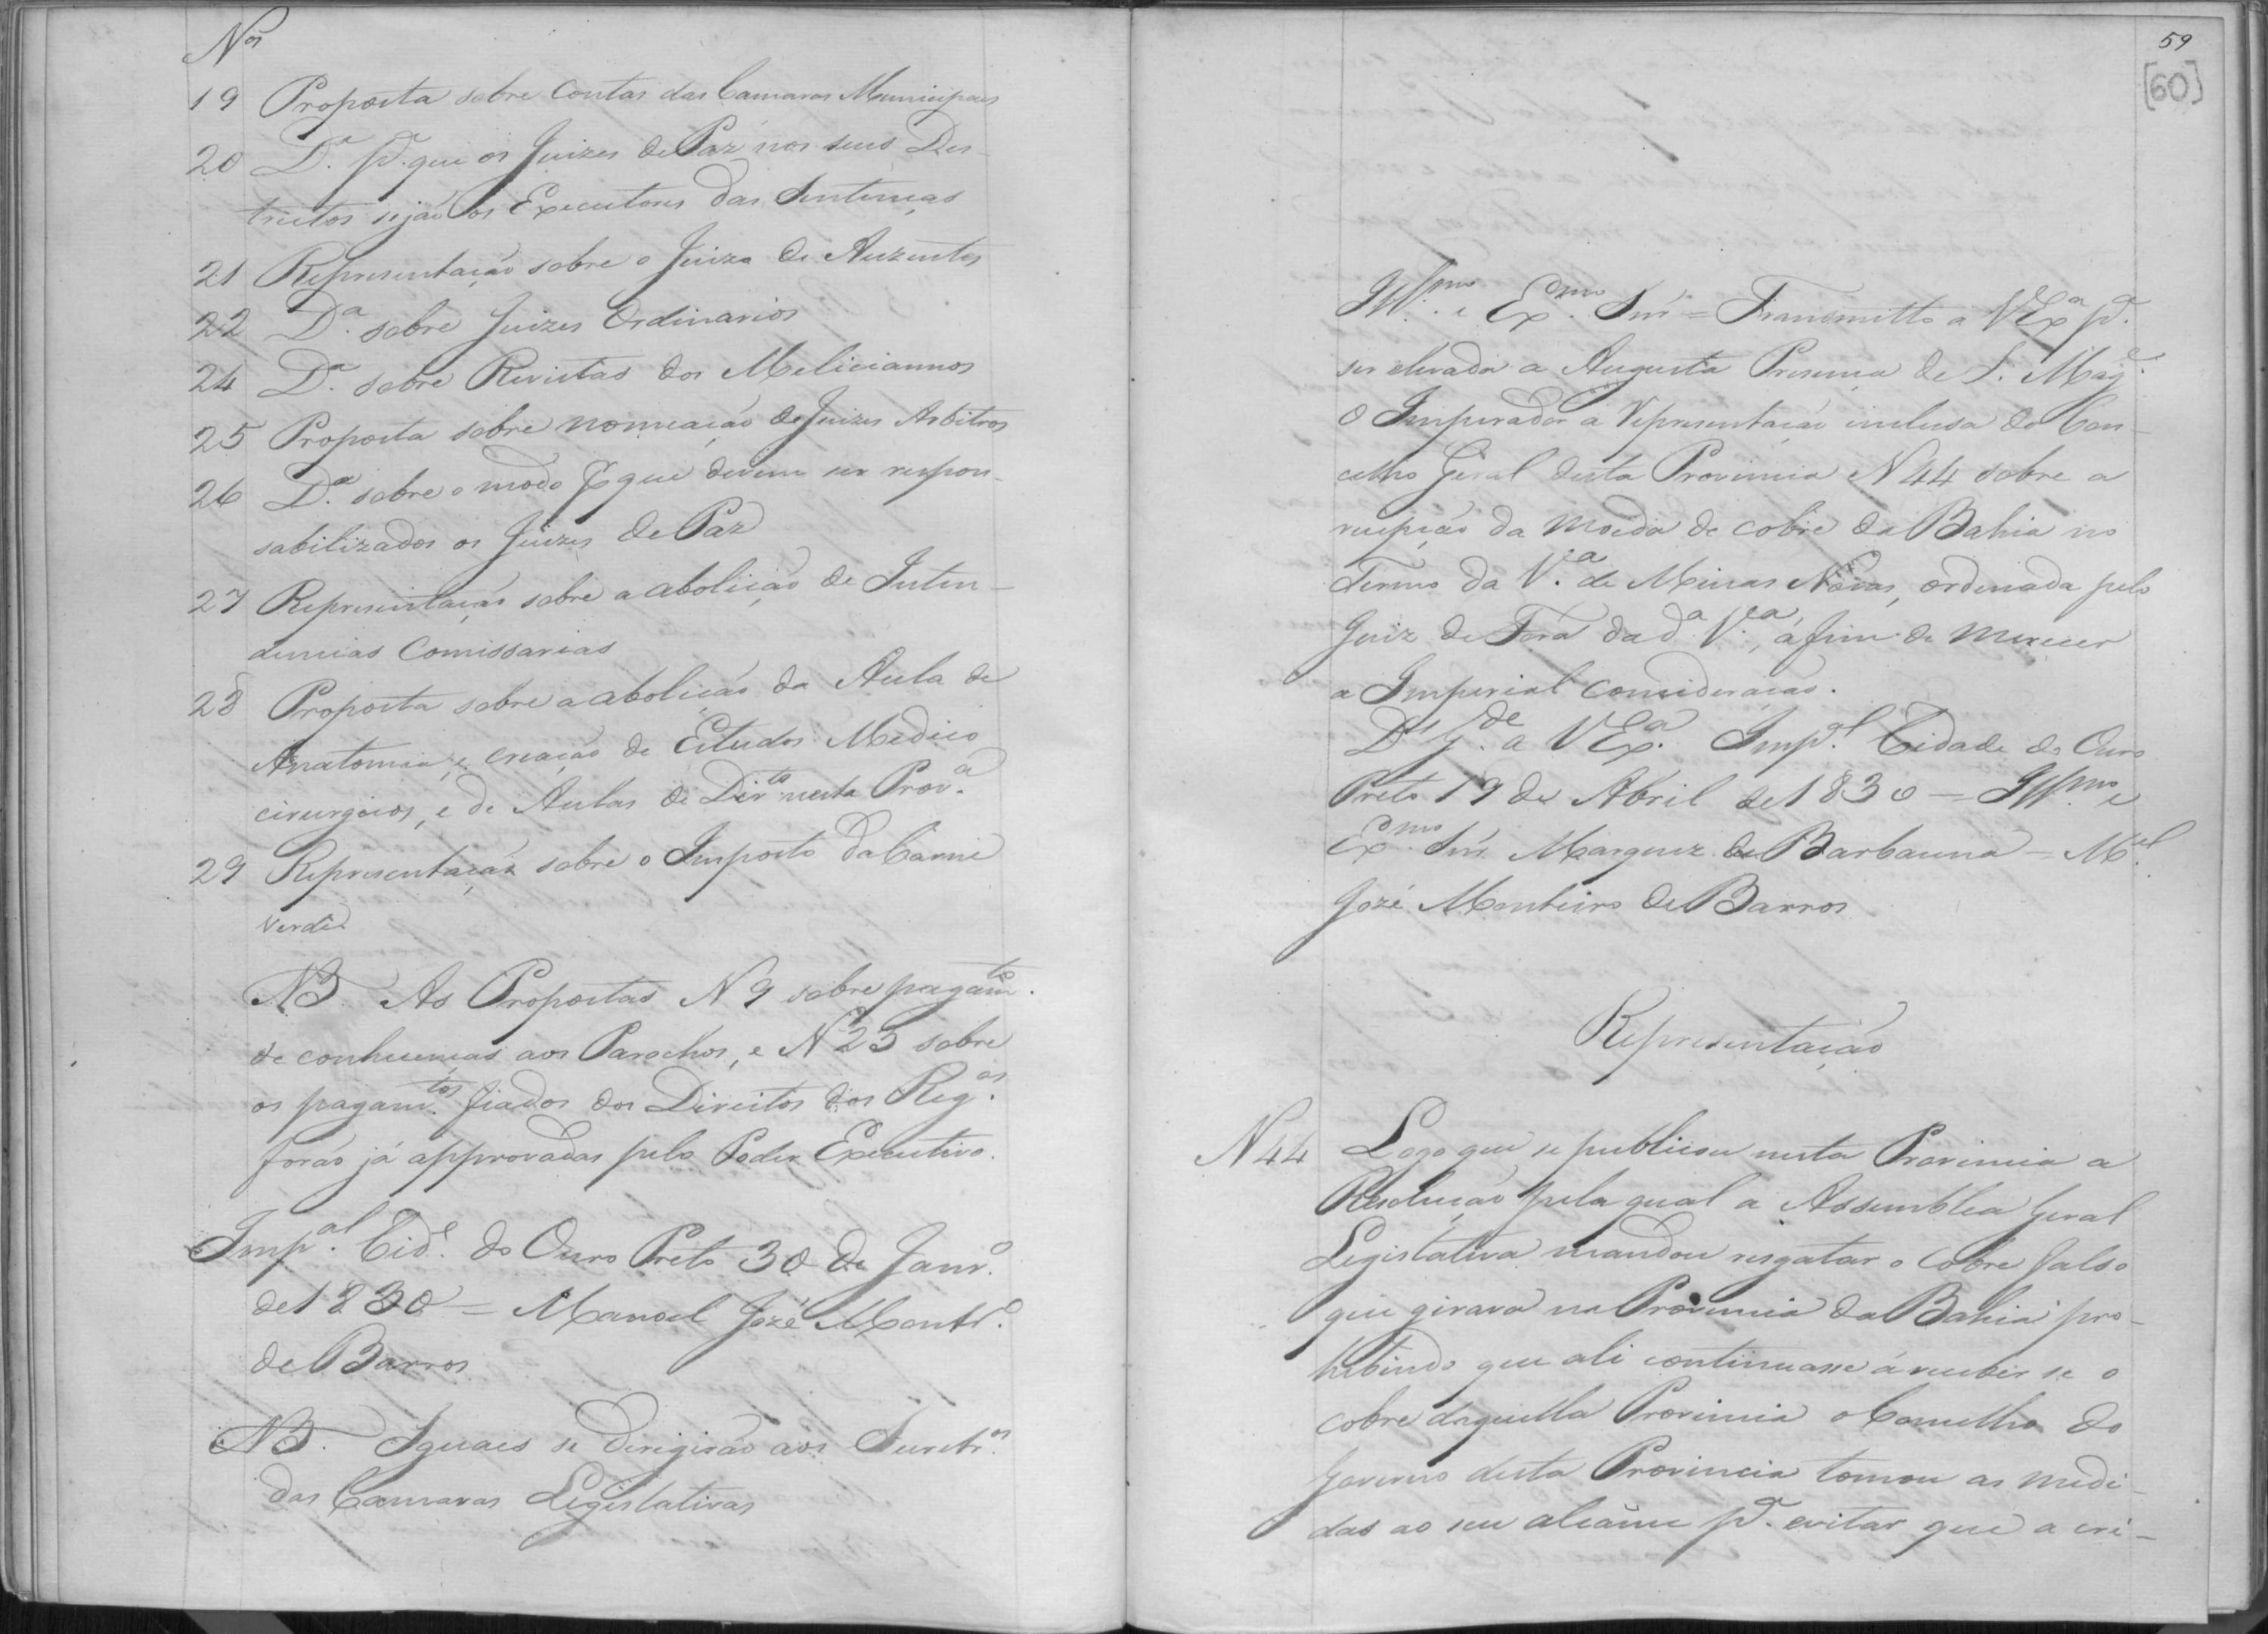 Nos
19 Proposta sobre contas das Camaras Municipaes
20 Da. pa. que os Juizes de Paz nos seus Des-
trictos sejão os Executores das Sentenças
21 Representação sobre o Juizo de Auzentes
22 Da. sobre Juizes Ordinarios
24 Da. sobre Revistas dos Meliciannos
25 Proposta sobre nomeação de Juizes Arbitros
26 Da. sobre o modo pr. que devem ser respon-
sabilizados os Juizes de Paz
27 Representação sobre a abolição de Inten-
dencias Comissarias
28 Proposta sobre a abolição da Aula de
Anatomia, e creação de Estudos Medico
cirurgicos, e de Aulas de Dirto. nesta Prova.
29 Representação sobre o Imposto da Carne
Verde
NB. As Propostas N 9 sobre pagamto.
de conhecenças aos Parochos, e N 23 sobre
os pagamtos. fiados dos Direitos dos Regos.
forão já approvadas pelo Poder Executivo.
Impal. Cide. do Ouro Preto 30 de Janro.
de 1830 = Manoel José Montro.
de Barros
NB. Iguaes se dirigirão aos Secretros.
das Camaras Legislativas
59
[60]
Illmo. e Exmo. Snr = Transmitto a VExa. pa.
ser elevada a Augusta Presença de S. Mage.
O Imperador a Representação inclusa do Con-
celho Geral desta Provincia N 44 sobre a
recepção da moeda de cobre da Bahia no
Termo da Va. de Minas Novas, ordenada pelo
Juiz de Fora da da. Va., a fim de merecer
a Imperial consideração.
Ds. Gde. a VExa. Impl. Cidade do Ouro
Preto 19 de Abril de 1830 = Illmo. e
Exmo. Snr. Marquez de Barbacena = Mel.
José Monteiro de Barros
Representação
N 44 Logo que se publicou nesta Provincia a
Resolução pela qual a Assemblea Geral
Legislativa mandou resgatar o cobre falso
que girava na Provincia da Bahia pro-
hibindo que ali continuasse á receber se o
cobre daquella Provincia o Conselho do
Governo desta Provincia tomou as medi-
das ao seu alcance pa. evitar que a cri-